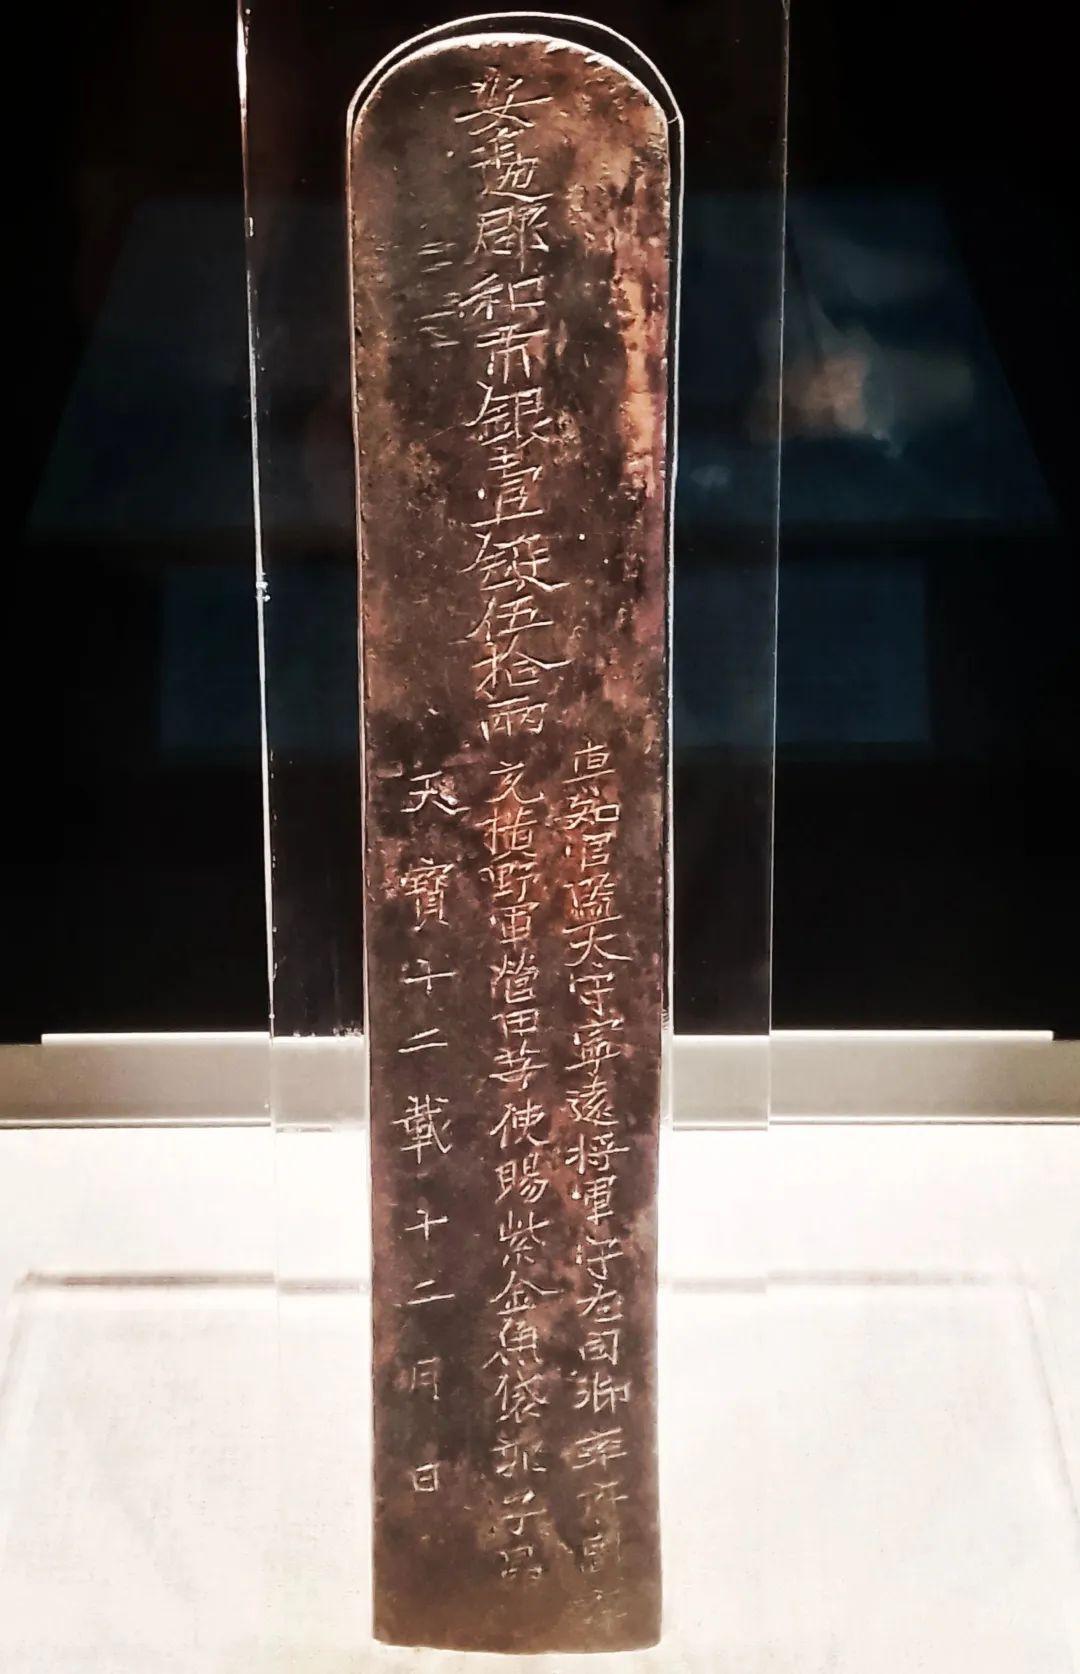 安邊郡和市銀壹鋌伍拾兩
專知官監太守寧遠將軍守左司禦率府副率
充橫野軍營田等使賜紫金魚袋郭子昂
天寶十二載十二月 日